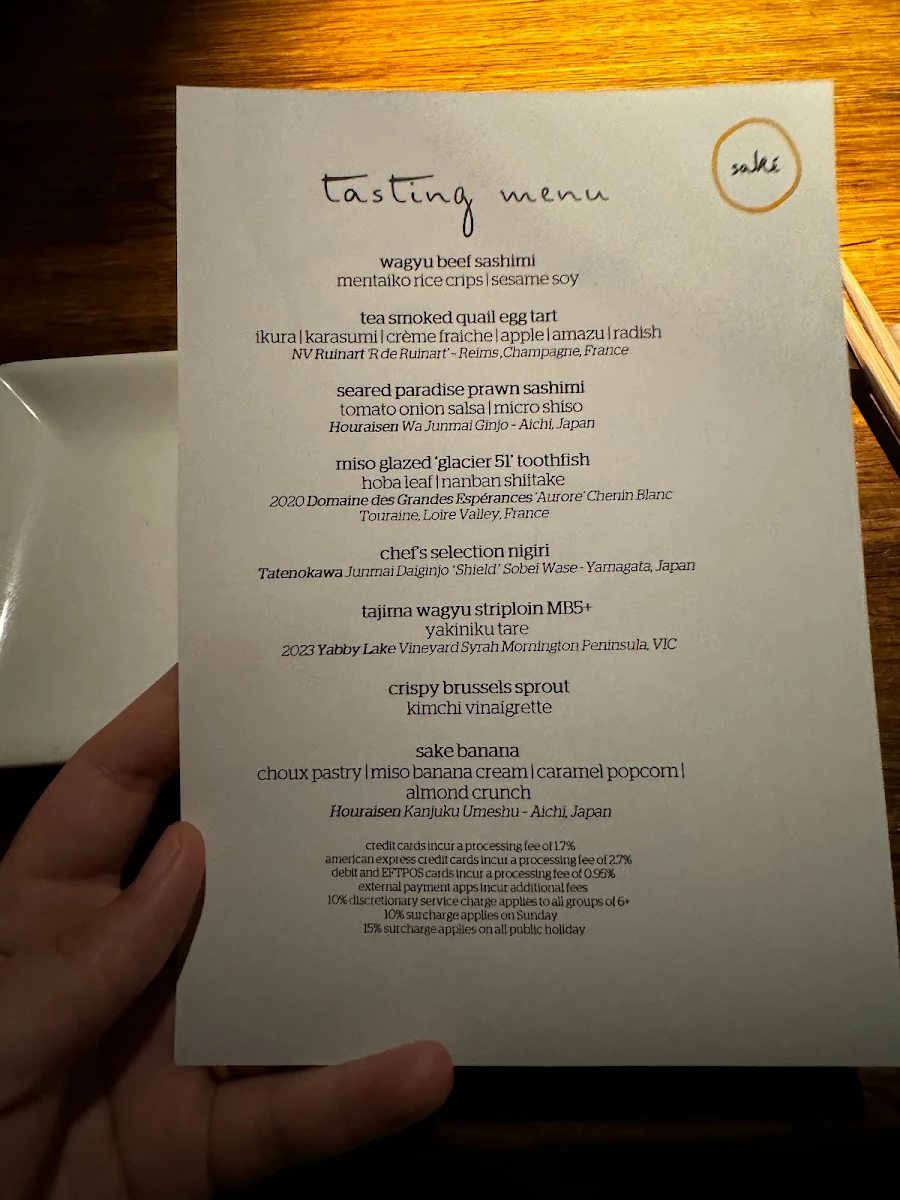 saké
tasting menu
wagyu beef sashimi
mentaiko rice crips | sesame soy
tea smoked quail egg tart
ikura | karasumi | crème fraiche | apple | amazu | radish
NV Ruinart 'R de Ruinart' - Reims, Champagne, France
seared paradise prawn sashimi
tomato onion salsa | micro shiso
Houraisen Wa Junmai Ginjo - Aichi, Japan
miso glazed 'glacier 51' toothfish
hoba leaf | nanban shiitake
2020 Domaine des Grandes Espérances 'Aurore' Chenin Blanc
Touraine, Loire Valley, France
chef's selection nigiri
Tatenokawa Junmai Daiginjo 'Shield' Sobei Wase - Yamagata, Japan
tajima wagyu striploin MB5+
yakiniku tare
2023 Yabby Lake Vineyard Syrah Mornington Peninsula, VIC
crispy brussels sprout
kimchi vinaigrette
sake banana
choux pastry | miso banana cream | caramel popcorn |
almond crunch
Houraisen Kanjuku Umeshu - Aichi, Japan
credit cards incur a processing fee of 1.7%
american express credit cards incur a processing fee of 2.7%
debit and EFTPOS cards incur a processing fee of 0.95%
external payment apps incur additional fees
10% discretionary service charge applies to all groups of 6+
10% surcharge applies on Sunday
15% surcharge applies on all public holiday